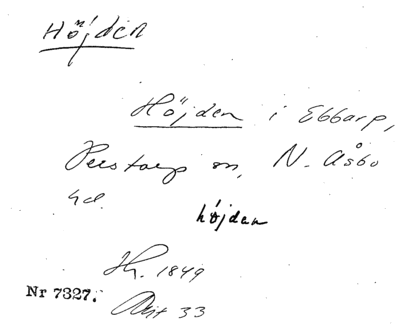 Höjden
Höjden i Ebbarp,
Perstorp sn, N. Åsbo
hd.
höjden
1849
Nr 7327.
Akt 33